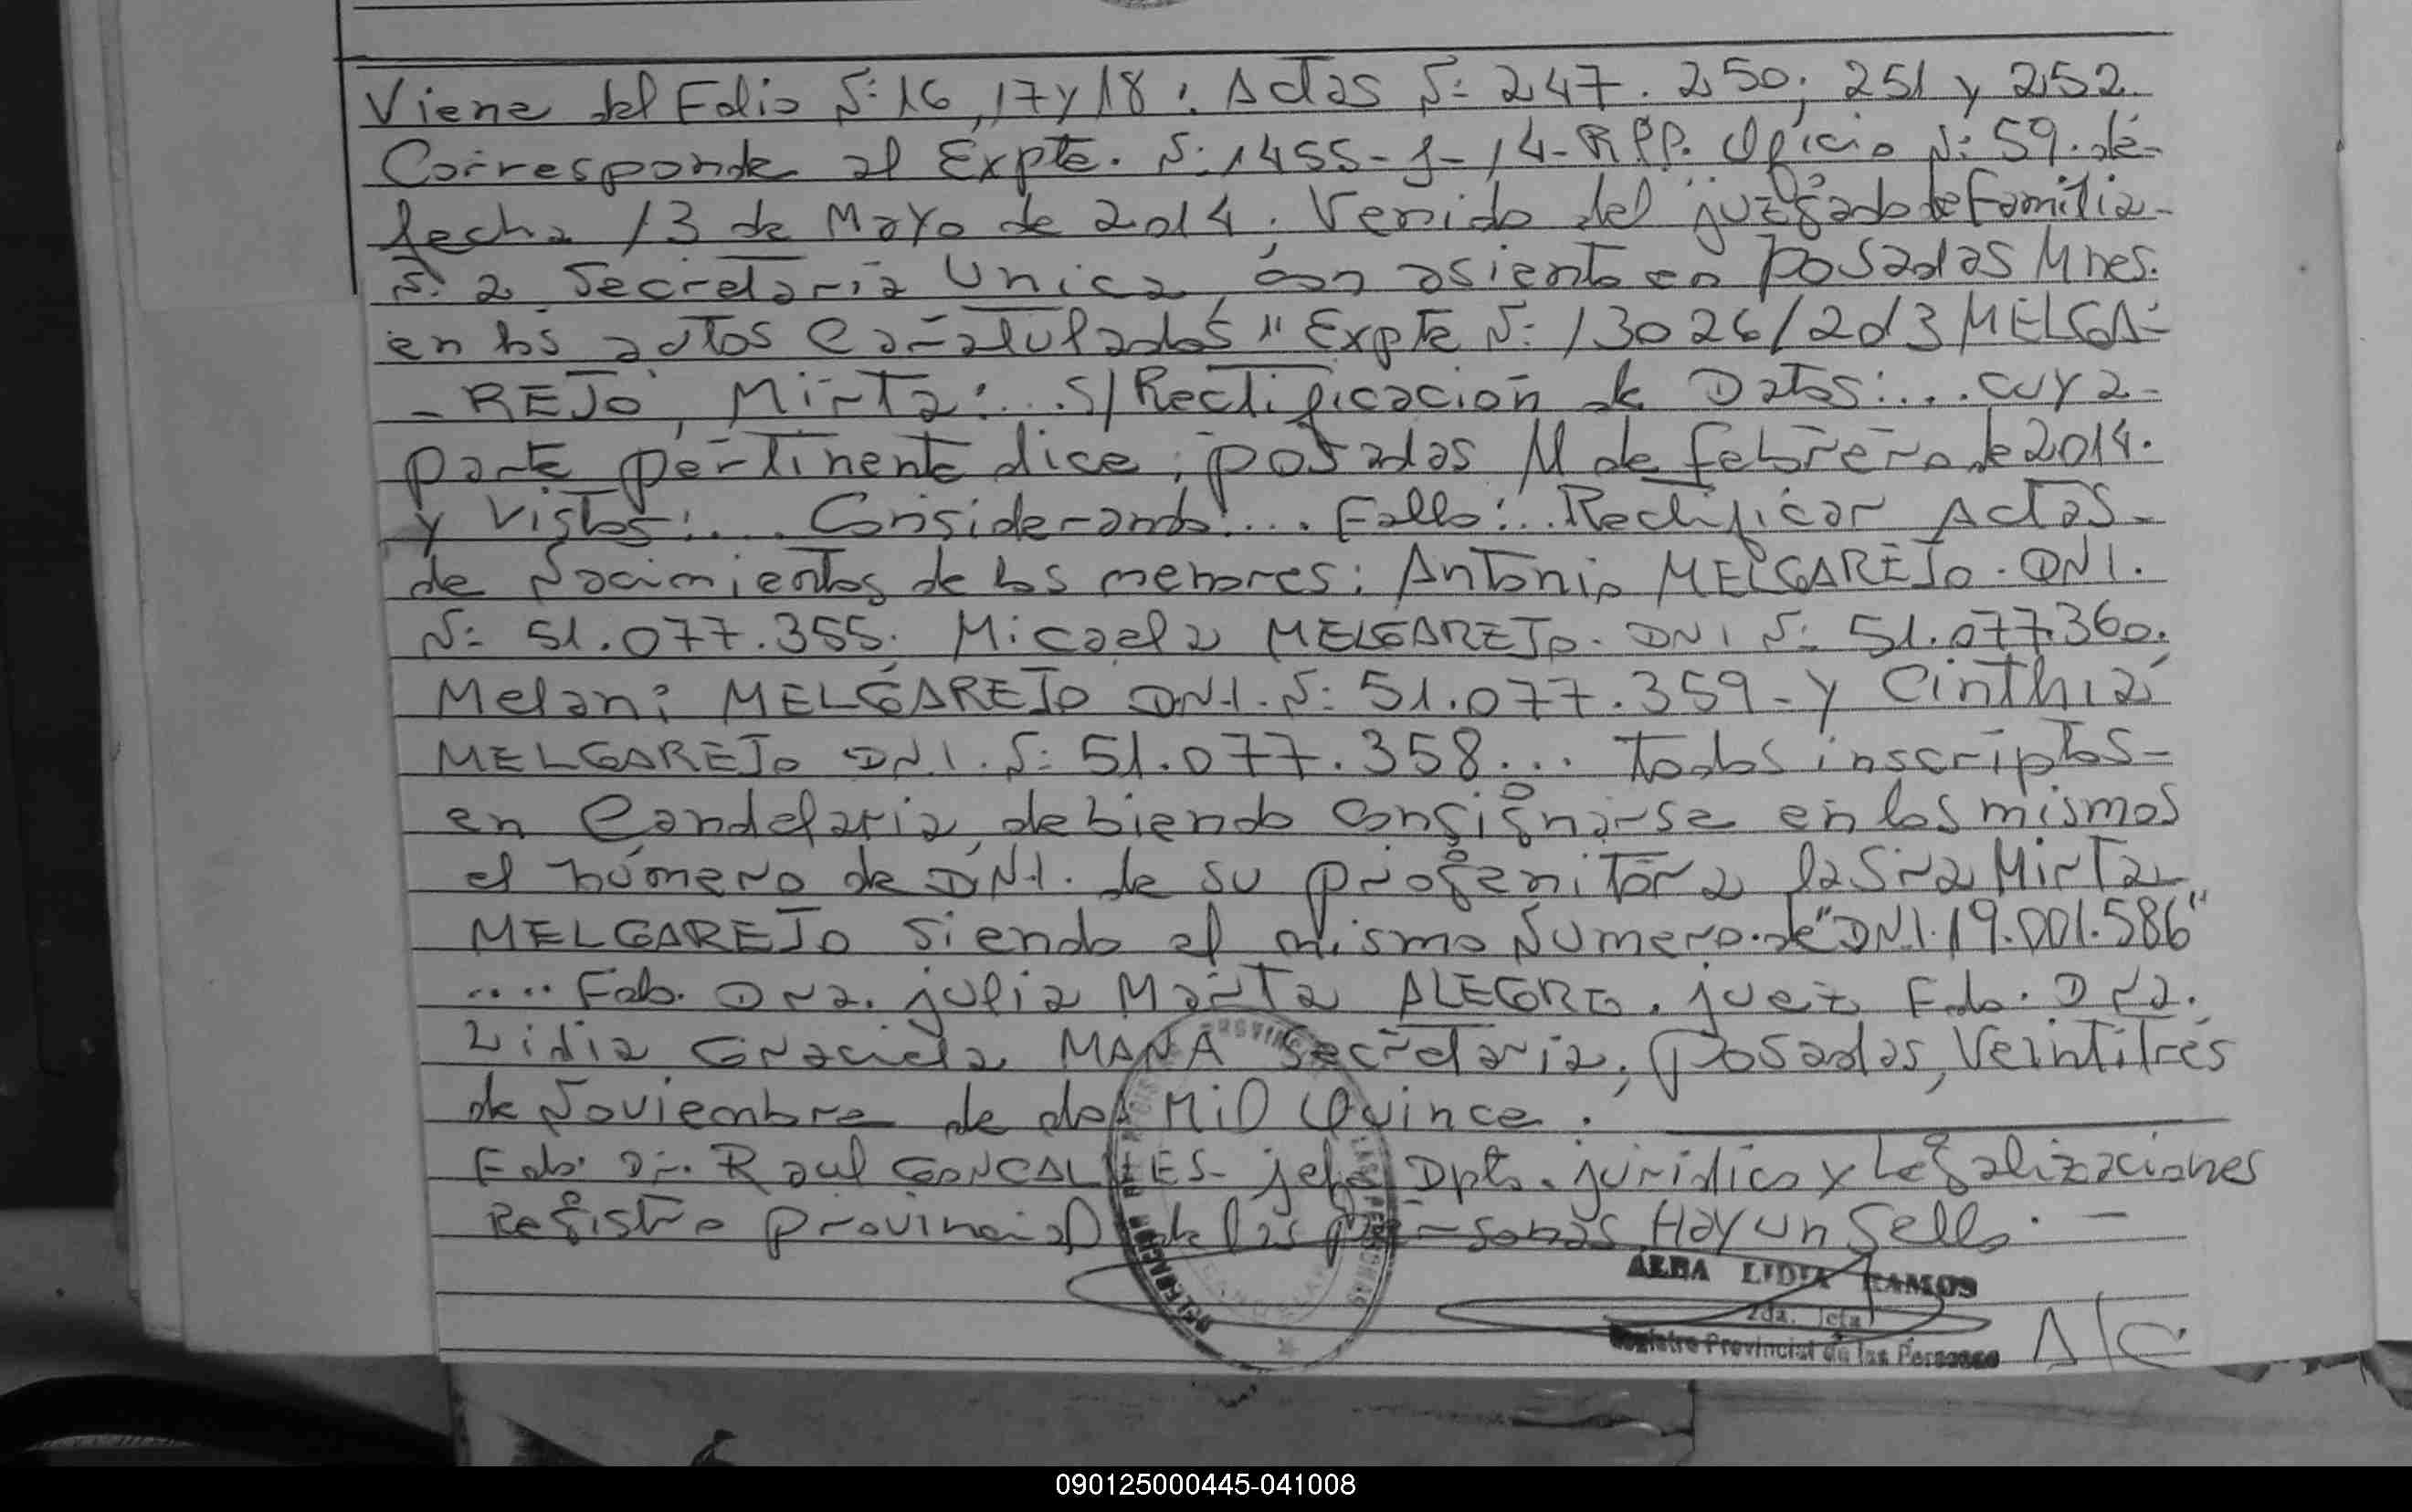 Viene del Folio N: 16, 17 y 18. Actas N: 247. 250; 251 y 252.
Corresponde al Expte. N: 1455-J-14-RPP. Oficio N: 59. de-
fecha 13 de Mayo de 2014. Venido del juzgado de Familia-
N: 2 Secretaria Unica, con asiento en Posadas Mnes.
en los autos Caratulados "Expte N: 13026/2013 MELGA-
-REJO, Mirta:... S/Rectificación de Datos:.... cuya-
parte pertinente dice: posadas 11 de febrero de 2014.
y Vistos:.... Considerando:.... Fallo:... Rectificar Actas-
de Nacimientos de los menores: Antonio MELGAREJO. DNI.
N: 51.077.355. Micaela MELGAREJO. DNI N: 51.077.360.
Melani MELGAREJO DN.I. N: 51.077.359-y Cinthia
MELGAREJO DN.I. N: 51.077.358... todos inscriptos-
en Candelaria, debiendo consignarse en los mismos
el número de DN.I. de su progenitora la Sra Mirta
MELGAREJO Siendo el mismo Numero. de "DN.I. 19.001.586"
.... Fdo. Dra. julia Marta ALEGRE. juez Fdo. Dra.
Lidia Graciela MAÑA Secretaria, posadas, Veintitrés
de Noviembre de dos Mil Quince.
Fdo. Dr. Raul GONCALVES- jefe Dpto. jurídico y Legalizaciones
Registro provincial de las personas Hay un Sello. -
ALBA LIDIA RAMOS
2da. Jefa
Registro Provincial de las Personas A/C
090125000445-041008